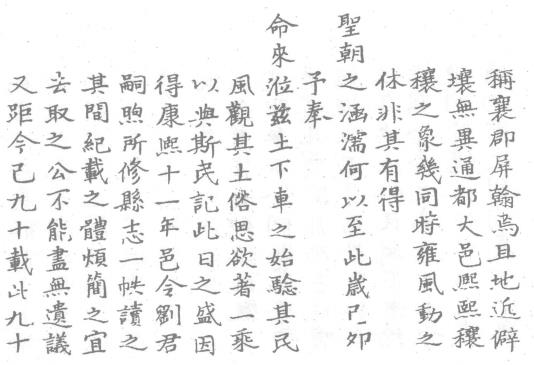 稱襄郡屏翰焉且地近僻
壤無異通都大邑熙熙穰
穰之象幾同時雍風動之
休非其有得
聖朝之涵濡何以至此歲己卯
予奉
命來涖茲土下車之始驗其民
風觀其土俗思欲著一乘
以與斯民記此日之盛因
得康熙十一年邑令劉君
嗣煦所修縣志一帙讀之
其間紀載之體煩簡之宜
去取之公不能盡無遺議
又距今已九十載此九十